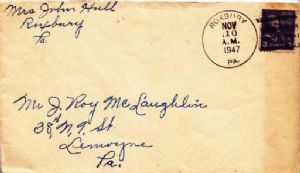 Mrs John Hull
Roxbury
Pa.
ROXBURY
NOV
10
A.M.
1947
PA.
3 CENTS 3
Mr J. Roy McLaughlin
38 N. 7. St.
Lemoyne
Pa.